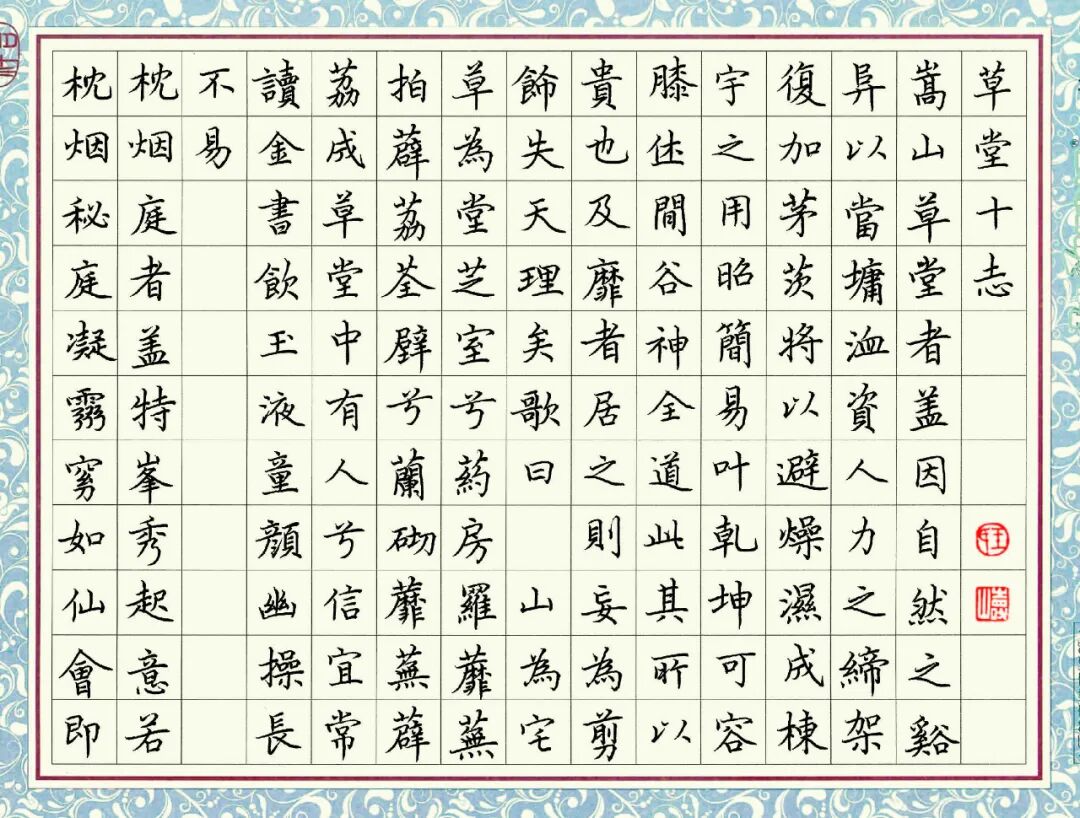 草堂十志
嵩山草堂者盖因自然之谿
阜以當墉洫資人力之締架
復加茅茨將以避燥濕成棟
宇之用昭簡易叶乾坤可容
膝休閒谷神全道此其所以
貴也及靡者居之則妄為剪
飾失天理矣歌曰 山為宅
草為堂芝室兮葯房羅蘼蕪
拍薜荔荃壁兮蘭砌蘼蕪薜
荔成草堂中有人兮信宜常
讀金書飲玉液童顔幽操長
不易
枕烟庭者盖特峯秀起意若
枕烟秘庭凝霧窈如仙會即